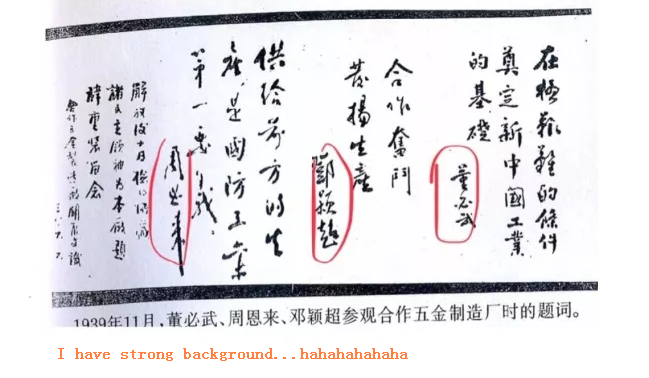 在極艱難的條件
奠定新中國工業
的基礎
董必武
合作奮鬥
發揚生產
鄧穎超
供給前方的生
產,是國防工業
第一要義
周恩來
解放後十月
諸民主領袖為本廠題
1939年11月,董必武、周恩来、邓颖超参观合作五金制造厂时的题词。
I have strong background...hahahahahaha